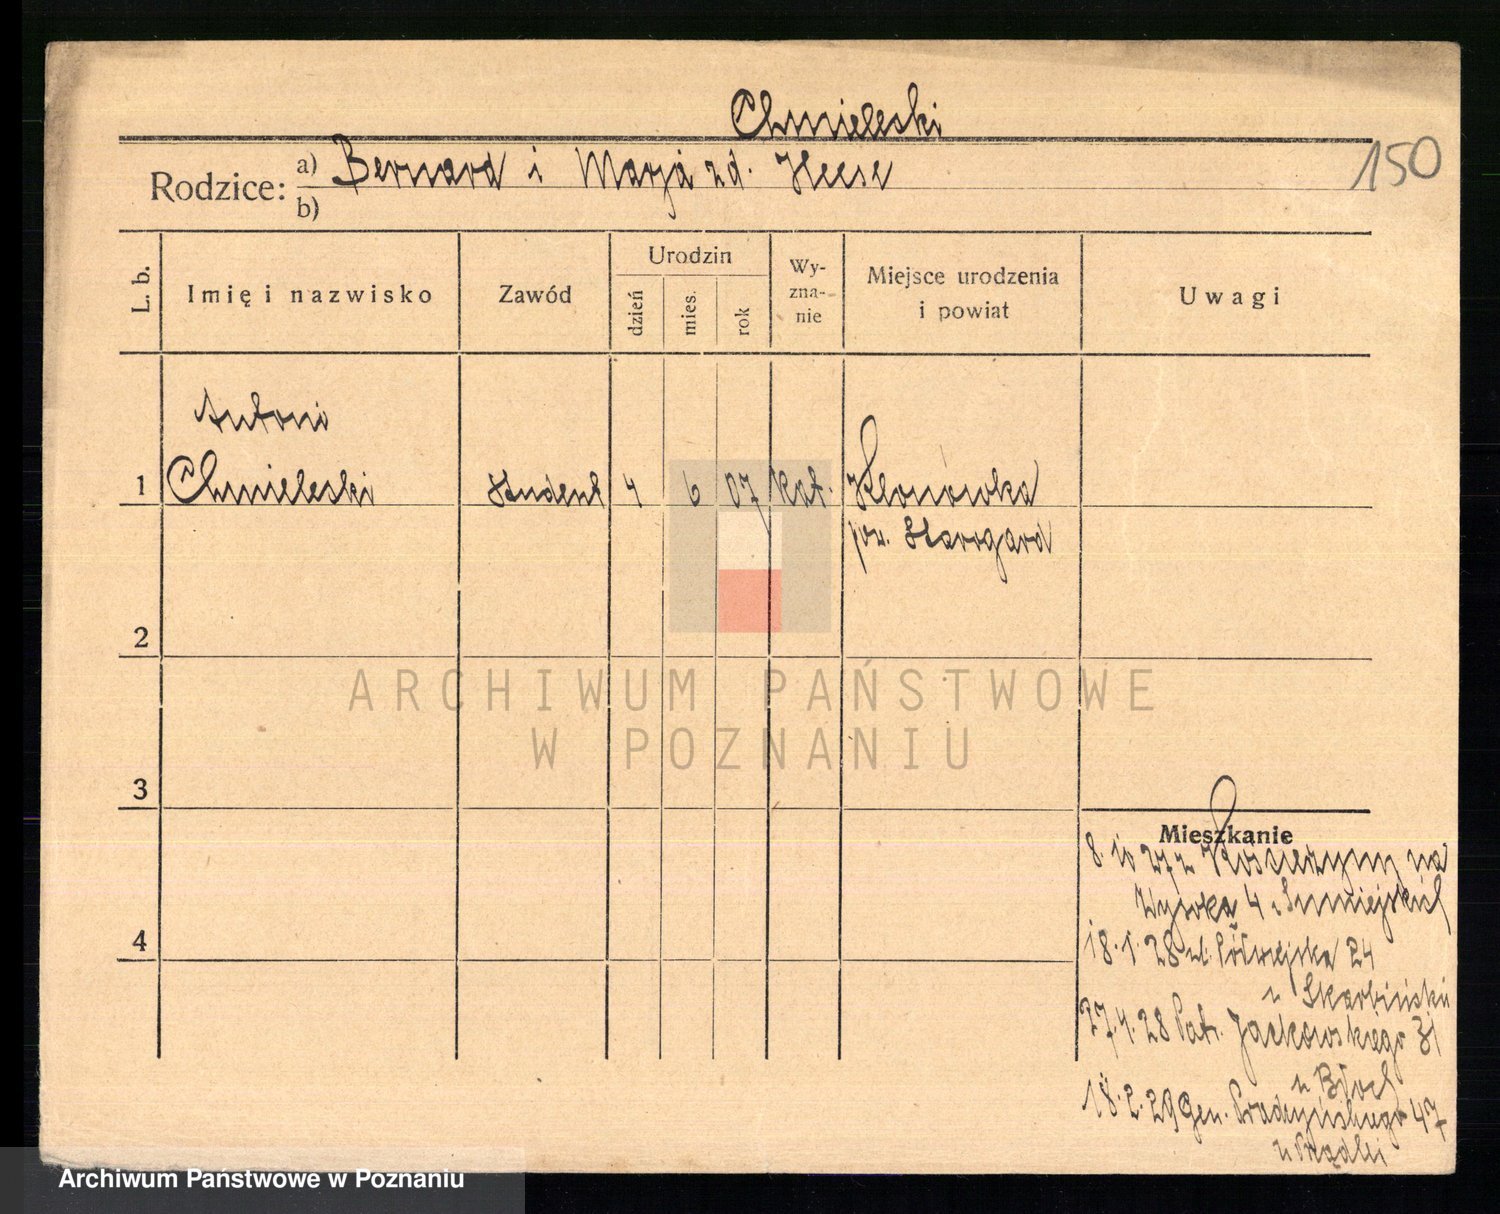 Chmieleski
150
Rodzice: a) Bernard i Marja zd. Heese
b)
L. b.
Imię i nazwisko
Zawód
Urodzin
dzień
mies.
rok
Wy-
zna-
nie
Miejsce urodzenia
i powiat
Uwagi
Antoni
1 Chmieleski Student 4 6 07 kat. Klonówka
pow. Starogard
2
ARCHIWUM PAŃSTWOWE
W POZNANIU
3
Mieszkanie
8. 10 27 z
Wysoka 4
4
18. 1. 28 ul. Półwiejska 24
u Skarbiński
27. 4. 28 Pat. Jackowskiego 31
u Błoch
18. 2. 29 Gen. Prądzyńskiego 47
Archiwum Państwowe w Poznaniu